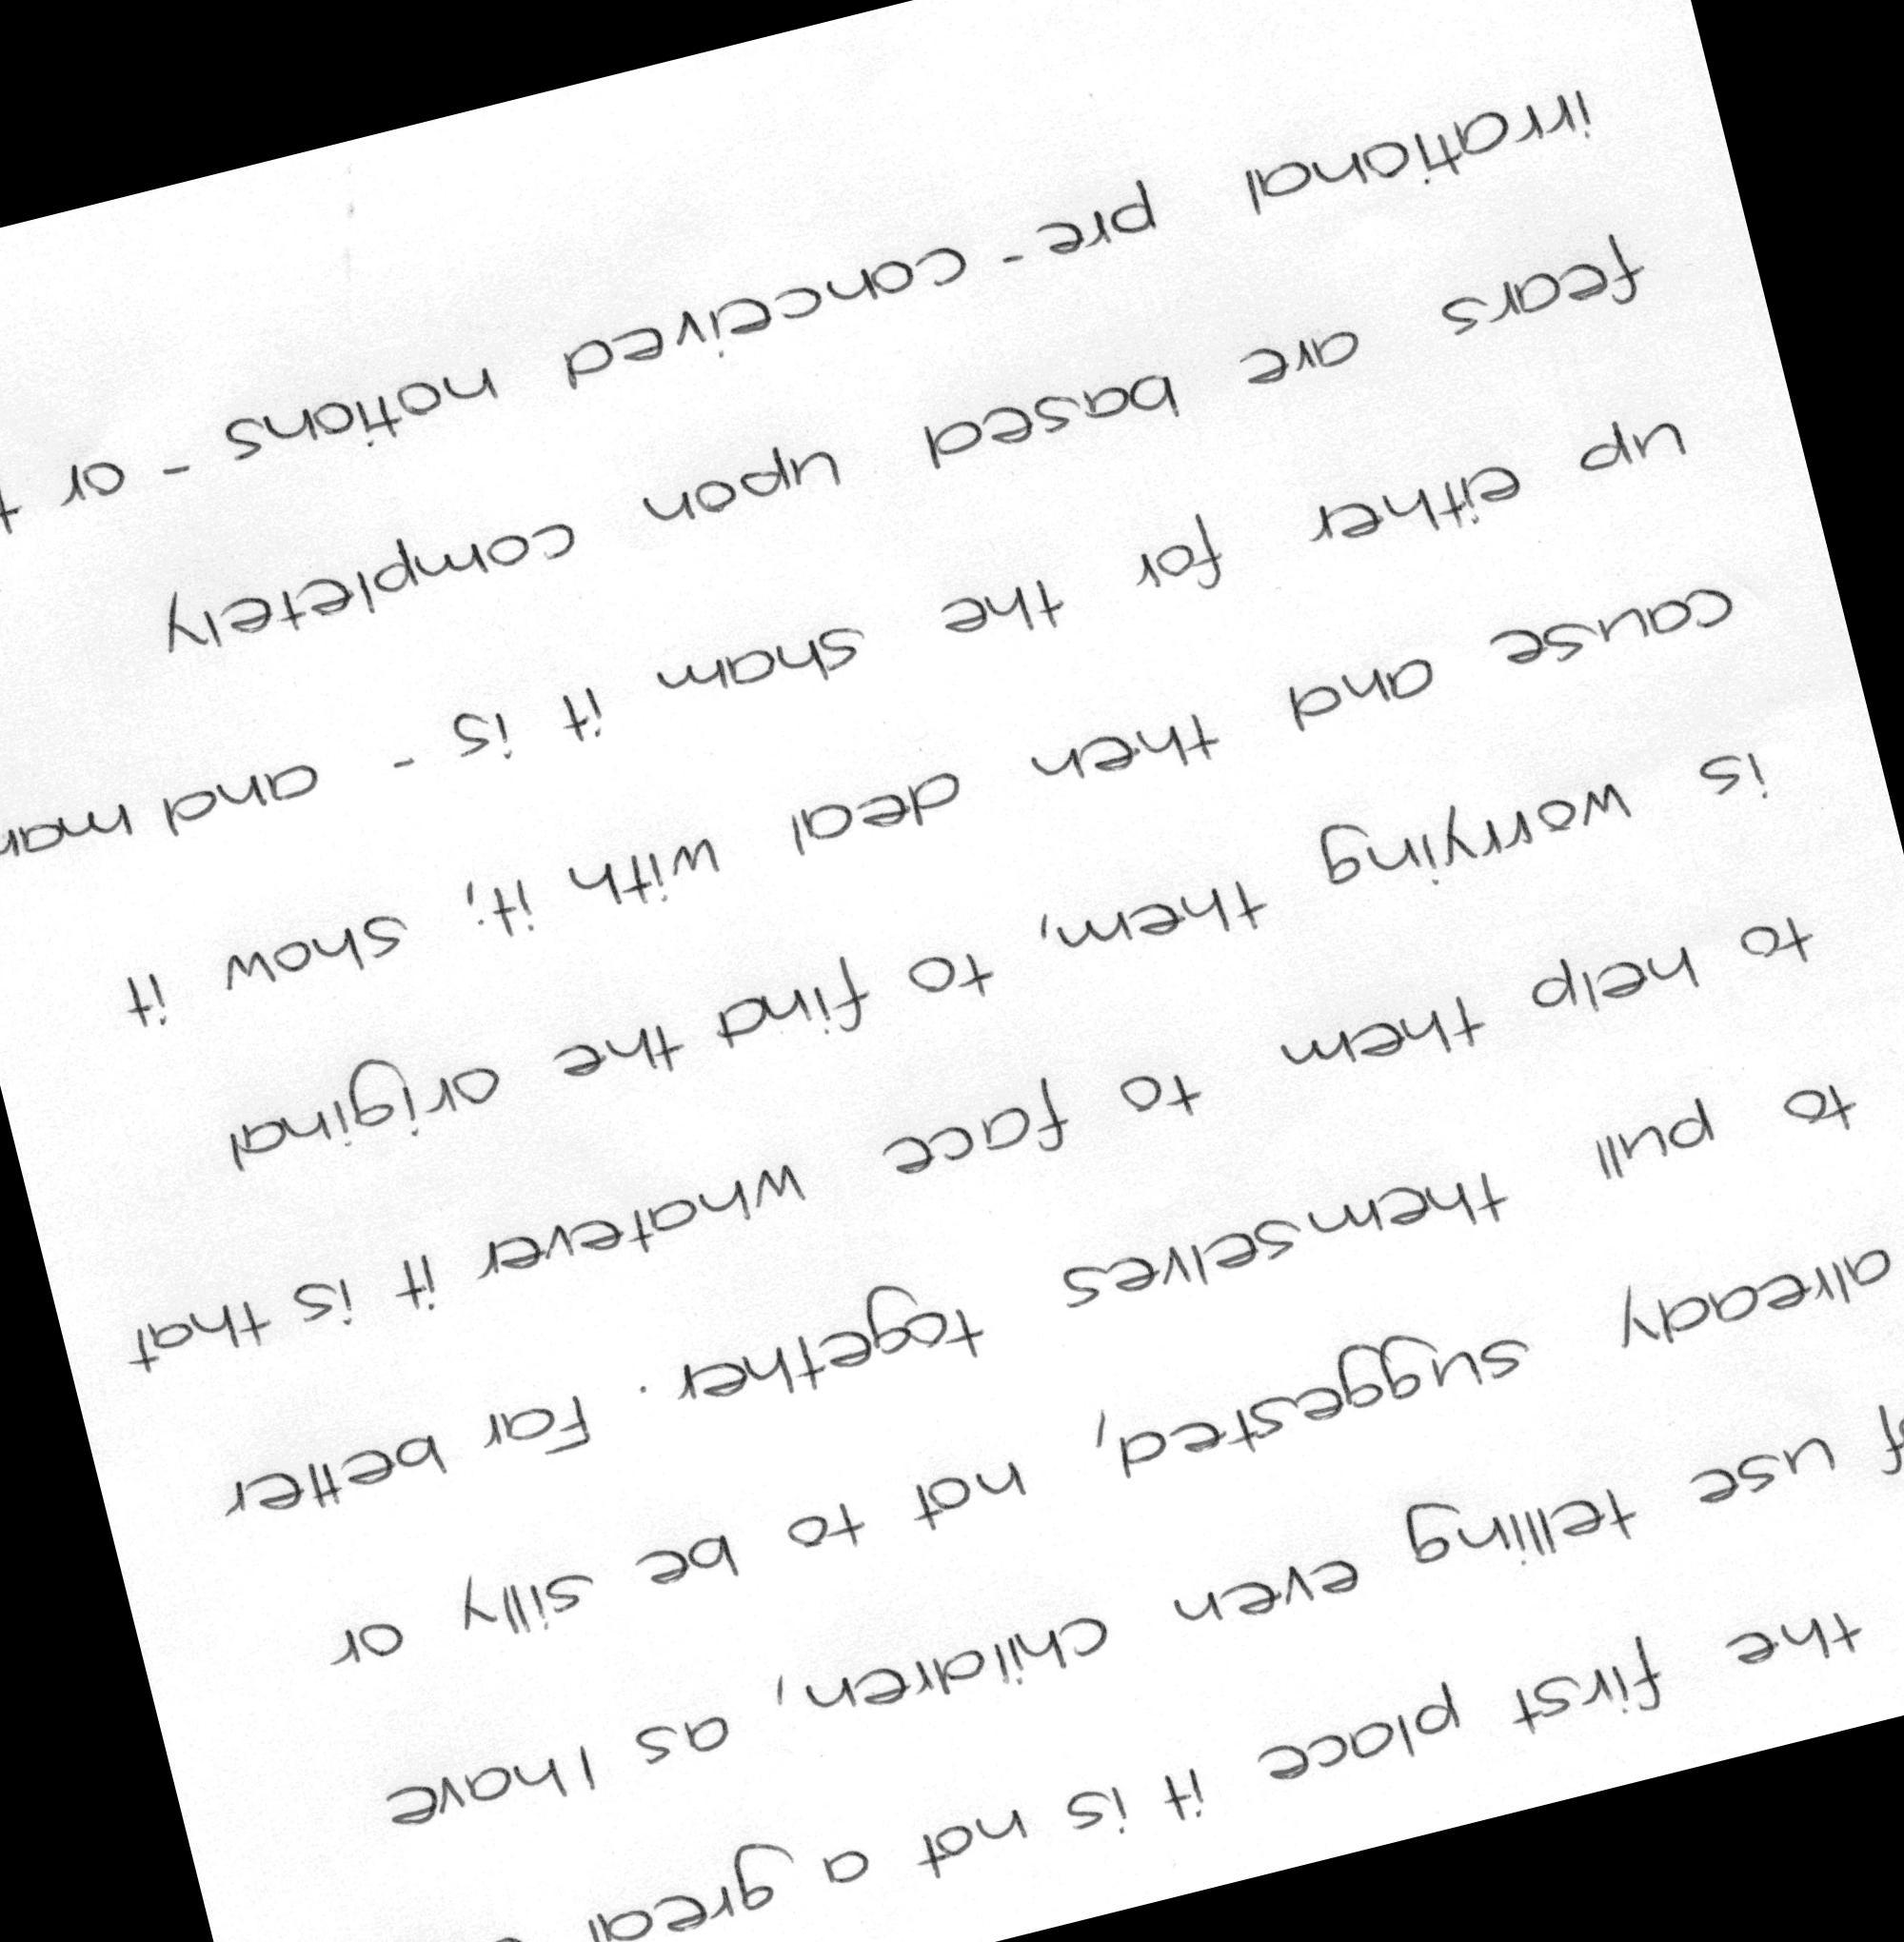 the first place it is not a great
use telling even children, as I have
already suggested, not to be silly or
to pull themselves together. Far better
to help them to face whatever it is that
is worrying them, to find the original
cause and then deal with it; show it
up either for the sham it is - and
fears are based upon completely
irrational pre-conceived notions - or